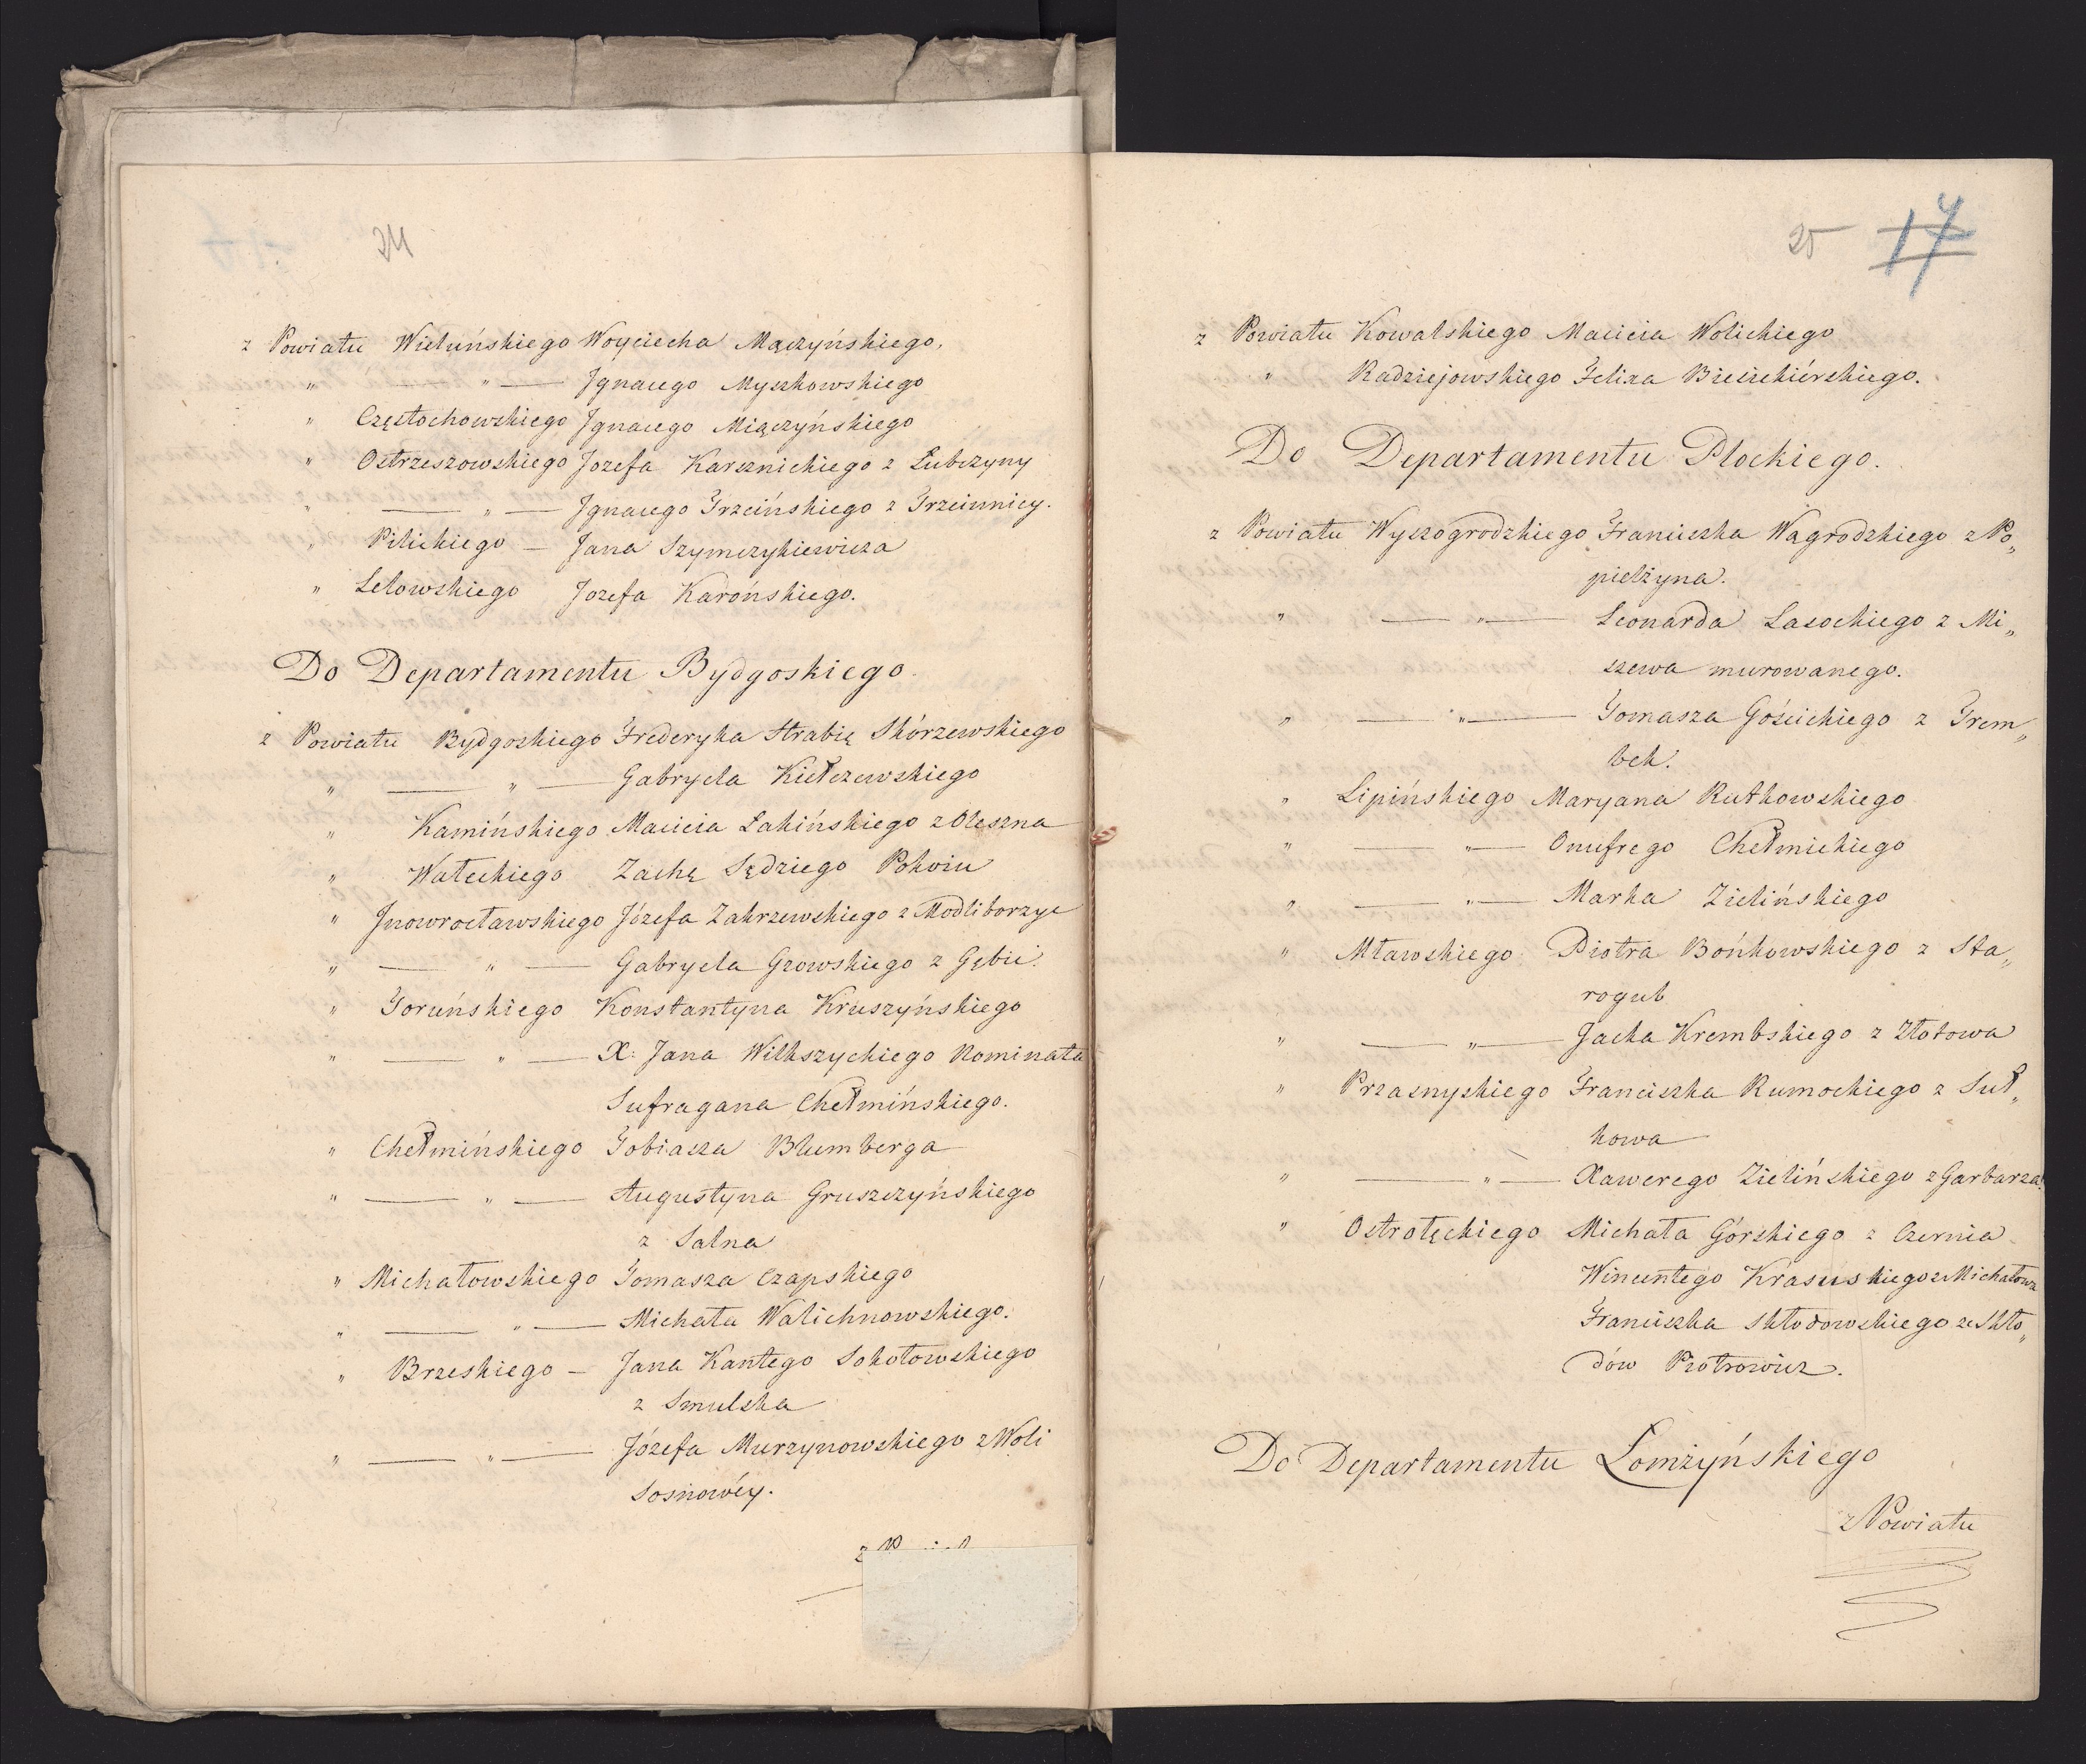 24
z Powiatu Wieluńskiego Woyciecha Mączyńskiego.
" — " — Jgnacego Myszkowskiego
" Częstochowskiego Jgnacego Miączyńskiego
" Ostrzeszowskiego Jozefa Karsznickiego z Lubczyny
" — " — Jgnacego Trzcińskiego z Trzcinnicy.
" Pilickiego — Jana Szymczykiewicza
" Lelowskiego Jozefa Karońskiego.
Do Departamentu Bydgoskiego.
z Powiatu Bydgoskiego Frederyka Hrabię Skórzewskiego
" — " — Gabryela Kiełczewskiego
" Kamińskiego Macieia Łakińskiego z Oleszna
" Wałeckiego Zachę Sędziego Pokoiu
" Jnowrocławskiego Józefa Zakrzewskiego z Modliborzyc
" — " — Gabryela Gzowskiego z Gębic.
" Toruńskiego Konstantyna Kruszyńskiego
" — " — X: Jana Wilkszyckiego Nominata
Sufragana Chełmińskiego.
" Chełmińskiego Tobiasza Blumberga
" — " — Augustyna Gruszczyńskiego
z Salna
" Michałowskiego Tomasza Czapskiego
" — " — Michała Walichnowskiego.
" Brzeskiego — Jana Kantego Sokołowskiego
z Smulska
" — " — Józefa Murzynowskiego z Woli
Sosnowéy.
25 17
z Powiatu Kowalskiego Macieia Wolickiego
" Radziejowskiego Felixa Biesiekiérskiego.
Do Departamentu Płockiego.
z Powiatu Wyszogrodzkiego Franciszka Wągrodzkiego z Po„
pielżyna.
" — " — Leonarda Lasockiego z Mi„
szewa murowanego.
" — " — Tomasza Gościckiego z Trem„
bek.
" Lipińskiego Maryana Rutkowskiego
" — " — Onufrego Chełmickiego
" — " — Marka Zielińskiego
" Mławskiego Piotra Bońkowskiego z Sta„
rogub
" — " — Jacka Krembskiego z Złotowa
" Przasnyskiego Franciszka Rumockiego z Suł„
kowa
" — " — Xawerego Zielińskiego z Garbarza.
" Ostrołęckiego Michała Górskiego z Czernia
Wincentego Krasuskiego z Michałowa
Franciszka Skłodowskiego ze Skło„
dów Piotrowicz.
Do Departamentu Łomżyńskiego
z Powiatu